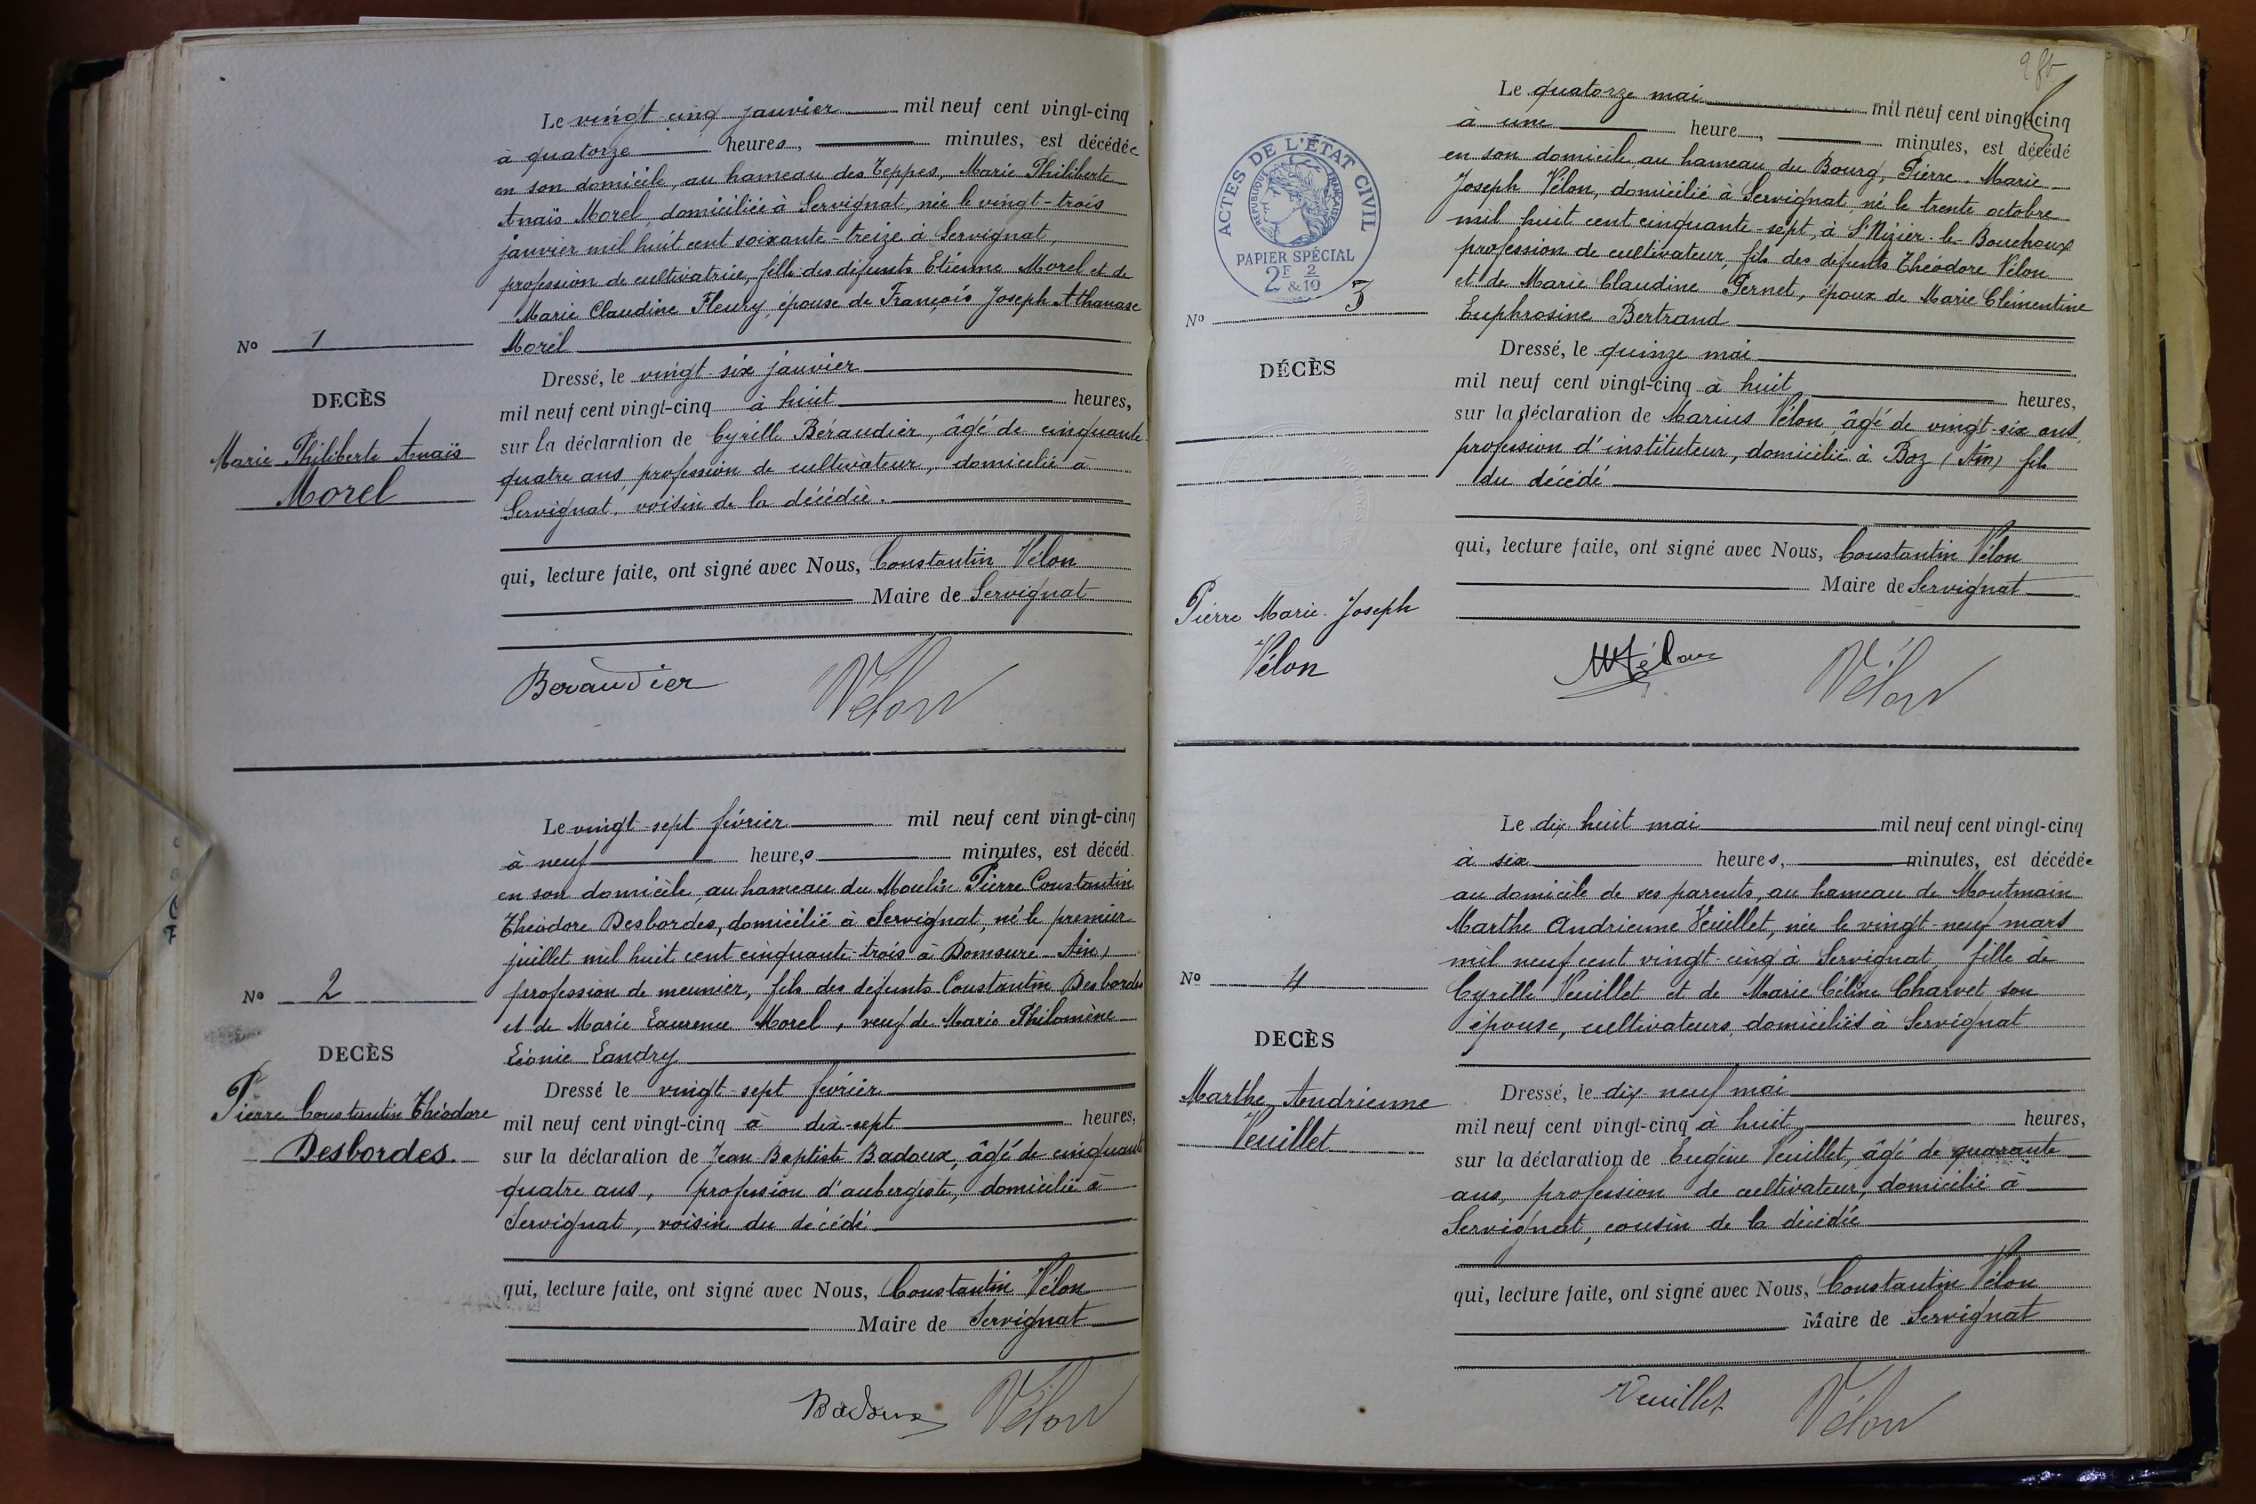 Le vingt-cinq janvier mil neuf cent vingt-cinq
à quatorze heures, minutes, est décédée
en son domicile, au hameau des Teppes, Marie Philiberte
Anaïs Morel, domiciliée à Servignat, née le vingt-trois
janvier mil huit cent soixante-treize à Servignat,
profession de cultivatrice, fille des défunts Etienne Morel et de
Marie Claudine Fleury, épouse de François Joseph Athanase
Morel
No 1
DECÈS
Marie Philiberte Anaïs
Morel
Dressé, le vingt-six janvier
mil neuf cent vingt-cinq à huit heures,
sur la déclaration de Cyrille Béraudier, âgé de cinquante
quatre ans, profession de cultivateur, domicilié à
Servignat, voisin de la décédée.
qui, lecture faite, ont signé avec Nous, Constantin Vélon
Maire de Servignat
Beraudier Vélon
Le vingt-sept février mil neuf cent vingt-cinq
à neuf heure,s minutes, est décéd
en son domicile, au hameau du Moulin Pierre Constantin
Théodore Desbordes, domicilié à Servignat, né le premier
juillet mil huit cent cinquante-trois à Domsure Ain)
profession de meunier, fils des défunts Constantin Desbordes
et de Marie Laurence Morel, veuf de Marie Philomène
Léonie Landry
No 2
DECÈS
Pierre Constantin Théodore
Desbordes.
Dressé le vingt-sept février
mil neuf cent vingt-cinq à dix-sept heures,
sur la déclaration de Jean Baptiste Badoux, âgé de cinquante
quatre ans, profession d'aubergiste, domicilié à
Servignat, voisin du décédé
qui, lecture faite, ont signé avec Nous, Constantin Vélon
Maire de Servignat
Badoux Vélon
Le quatorze mai mil neuf cent vingt-cinq
à une heure, minutes, est décédé
en son domicile au hameau du Bourg, Pierre-Marie
Joseph Vélon, domicilié à Servignat, né le trente octobre
mil huit cent cinquante-sept, à St Nizier-le-Bouchoux
profession de cultivateur, fils des défunts Théodore Vélon
et de Marie Claudine Pernet, époux de Marie Clémentine
Euphrosine Bertrand
ACTES DE L'ÉTAT CIVIL
RÉPUBLIQUE FRANÇAISE
PAPIER SPÉCIAL
2F 2
& 10
No 3
DÉCÈS
Pierre Marie-Joseph
Vélon
Dressé, le quinze mai
mil neuf cent vingt-cinq à huit heures,
sur la déclaration de Marius Vélon, âgé de vingt-six ans,
profession d'instituteur, domicilié à Boz (Ain) fils
du décédé
qui, lecture faite, ont signé avec Nous, Constantin Vélon
Maire de Servignat
MVélon Vélon
Le dix-huit mai mil neuf cent vingt-cinq
à six heures, minutes, est décédée
au domicile de ses parents, au hameau de Montmain
Marthe Andrienne Veuillet, née le vingt-neuf mars
mil neuf cent vingt-cinq à Servignat, fille de
Cyrille Veuillet et de Marie Céline Charvet son
épouse, cultivateurs domiciliés à Servignat
No 4
DECÈS
Marthe Andrienne
Veuillet
Dressé, le dix-neuf mai
mil neuf cent vingt-cinq à huit heures,
sur la déclaration de Eugène Veuillet, âgé de quarante
ans, profession de cultivateur, domicilié à
Servignat, cousin de la décédée
qui, lecture faite, ont signé avec Nous, Constantin Vélon
Maire de Servignat
Veuillet Vélon